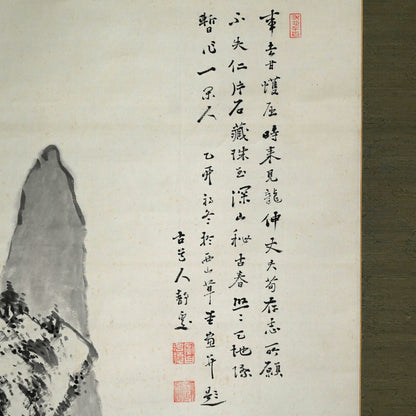 事去甘蠖屈時来見龍伸丈夫苟存志所願
不失仁片石藏珠玉深山秘古春熙〻天地際
暫作一閑人 乙卯初冬於西山草堂畫并題
古道人静